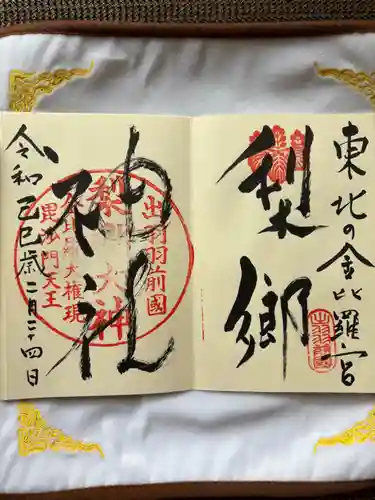 東北の金比羅宮
梨郷
神社
出羽前國
梨郷大神
金比羅大権現
毘沙門天王
令和乙巳歳二月二十四日